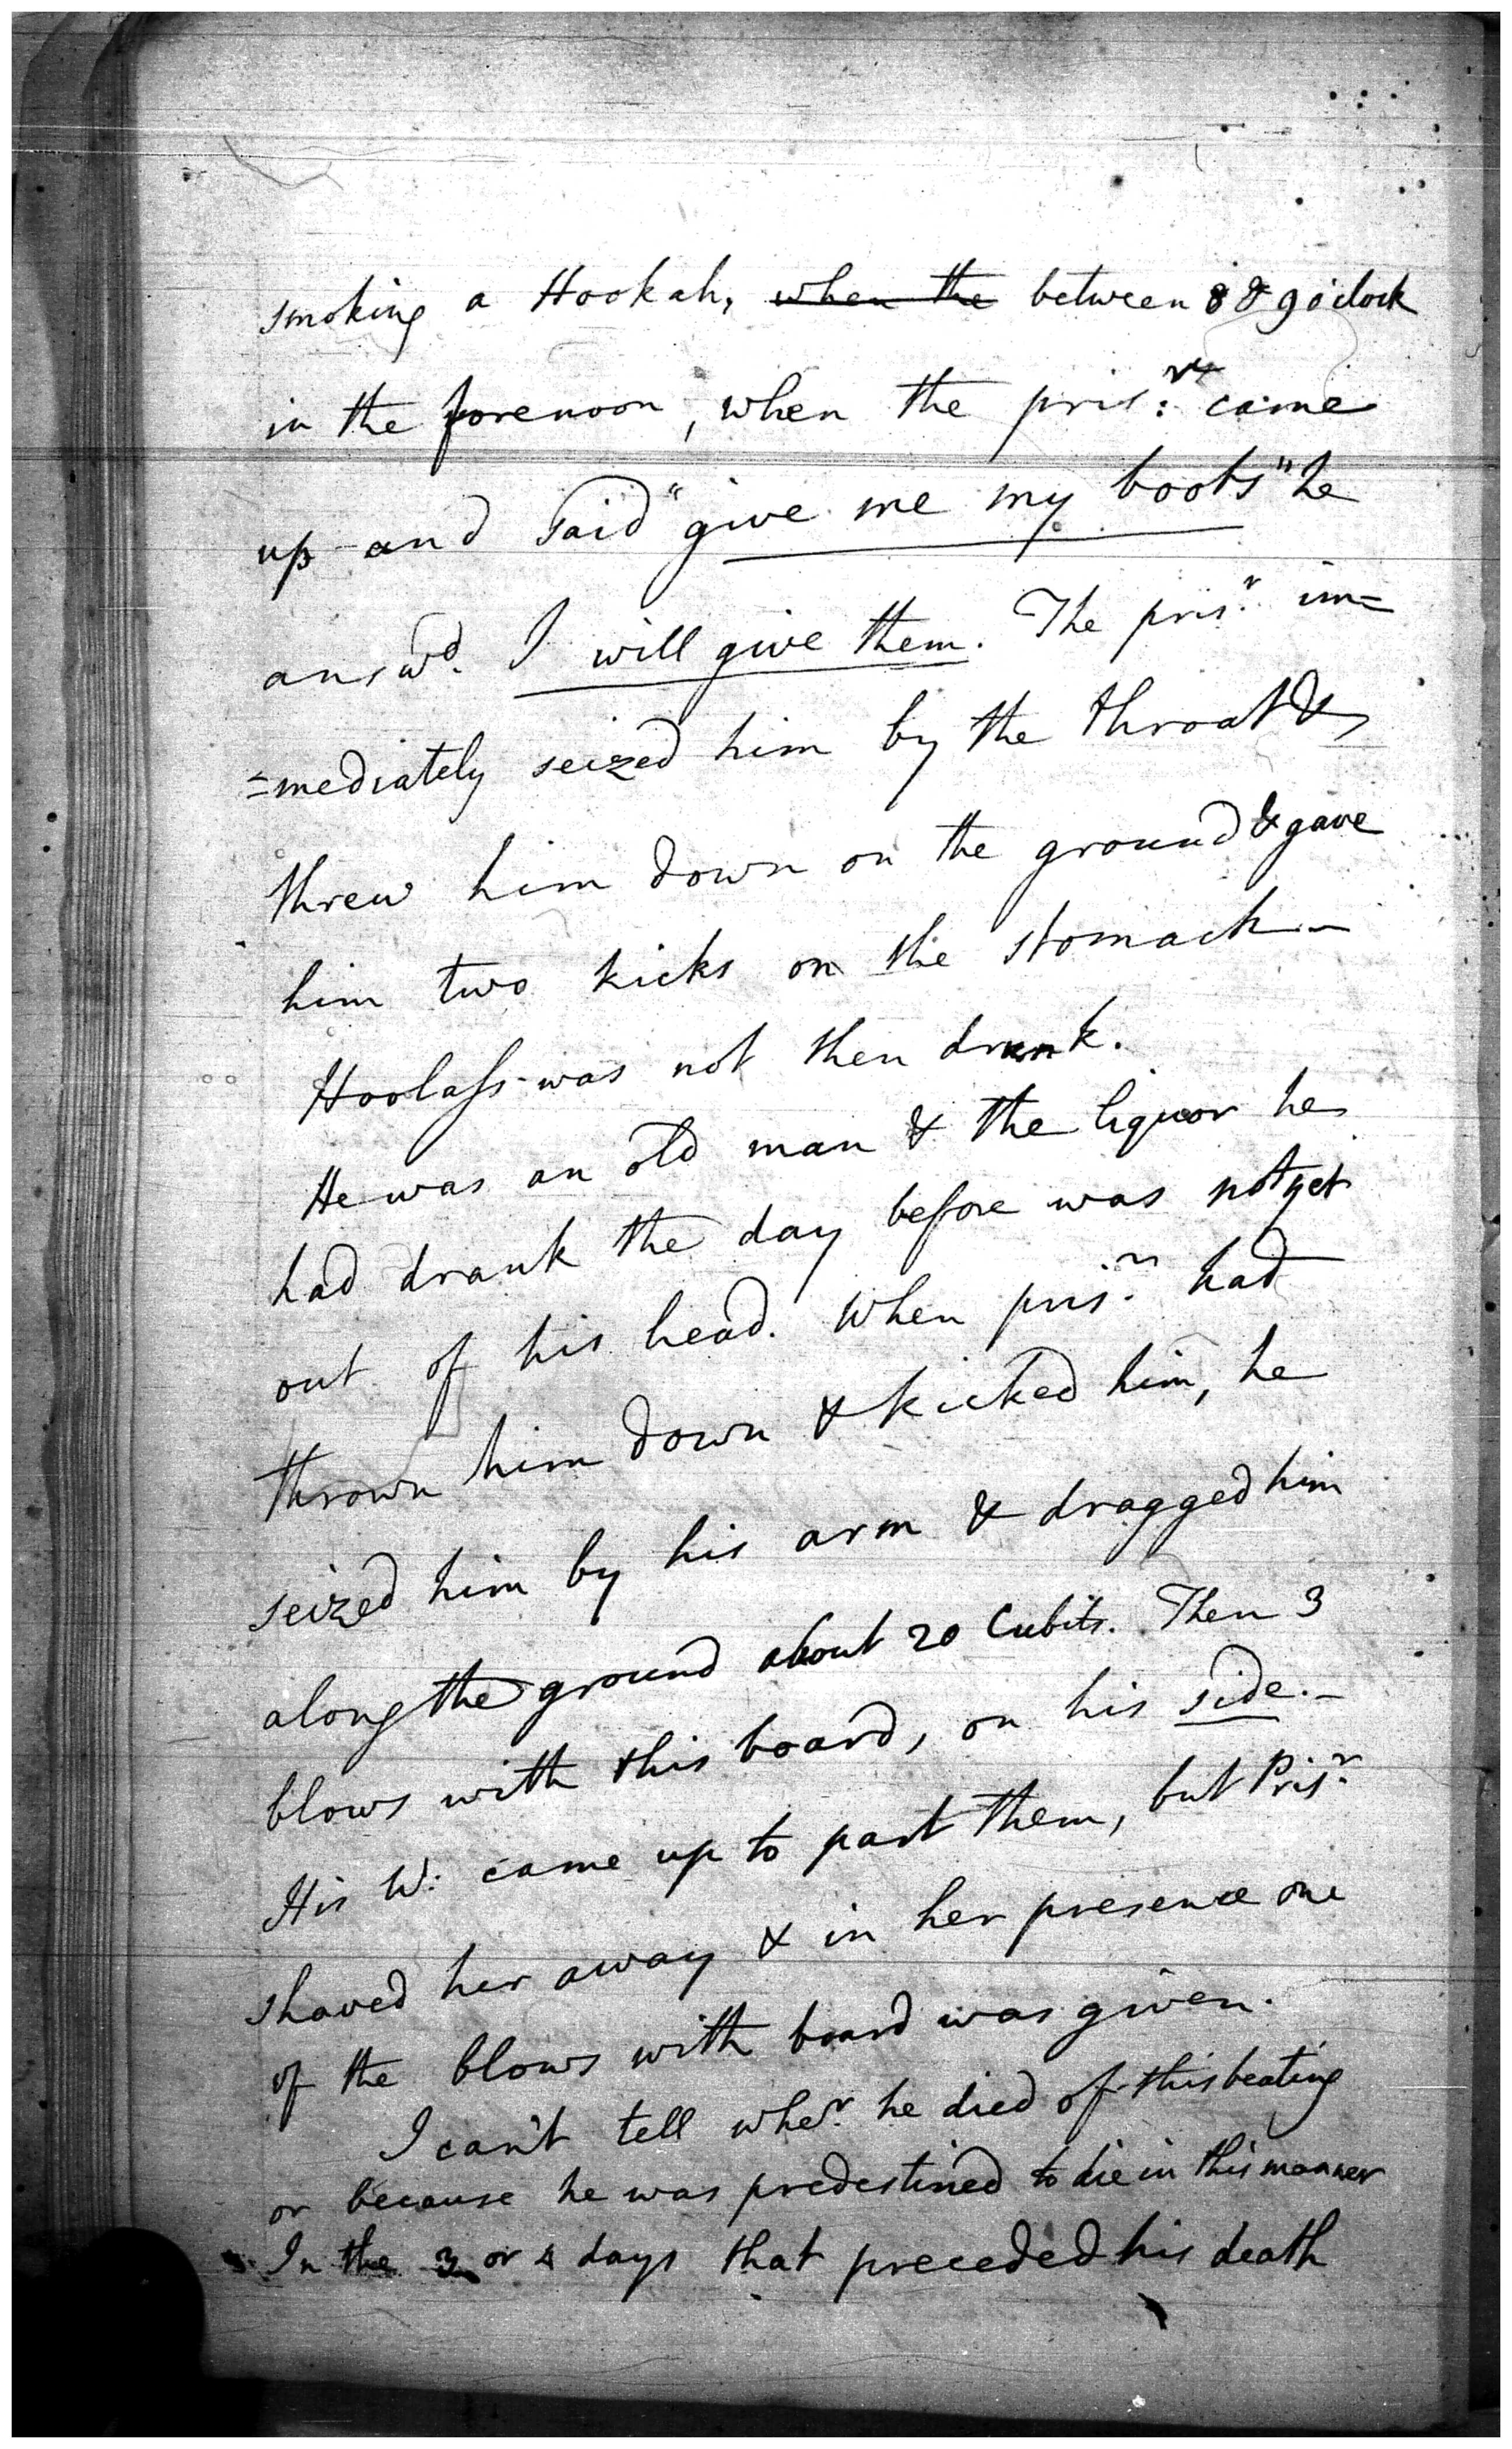 smoking a Hookah, when the between 8 & 9 o'clock
in the forenoon, when the pris:r came
up and said "give me my boots" he
answd. I will give them. The prisr. im=
=mediately seized him by the throat &
threw him down on the ground & gave
him two kicks on the stomach -
Hoolass was not then drunk.
He was an old man & the liquor he
had drank the day before was not yet
out of his head. When prisr. had
thrown him down & kicked him, he
seized him by his arm & dragged him
along the ground about 20 Cubits. Then 3
blows with this board, on his side. -
His W: came up to part them, but Prisr.
shoved her away & in her presence one
of the blows with board was given.
I can't tell wher. he died of this beating
or because he was predestined to die in this manner
In the 3 or 4 days that preceded his death